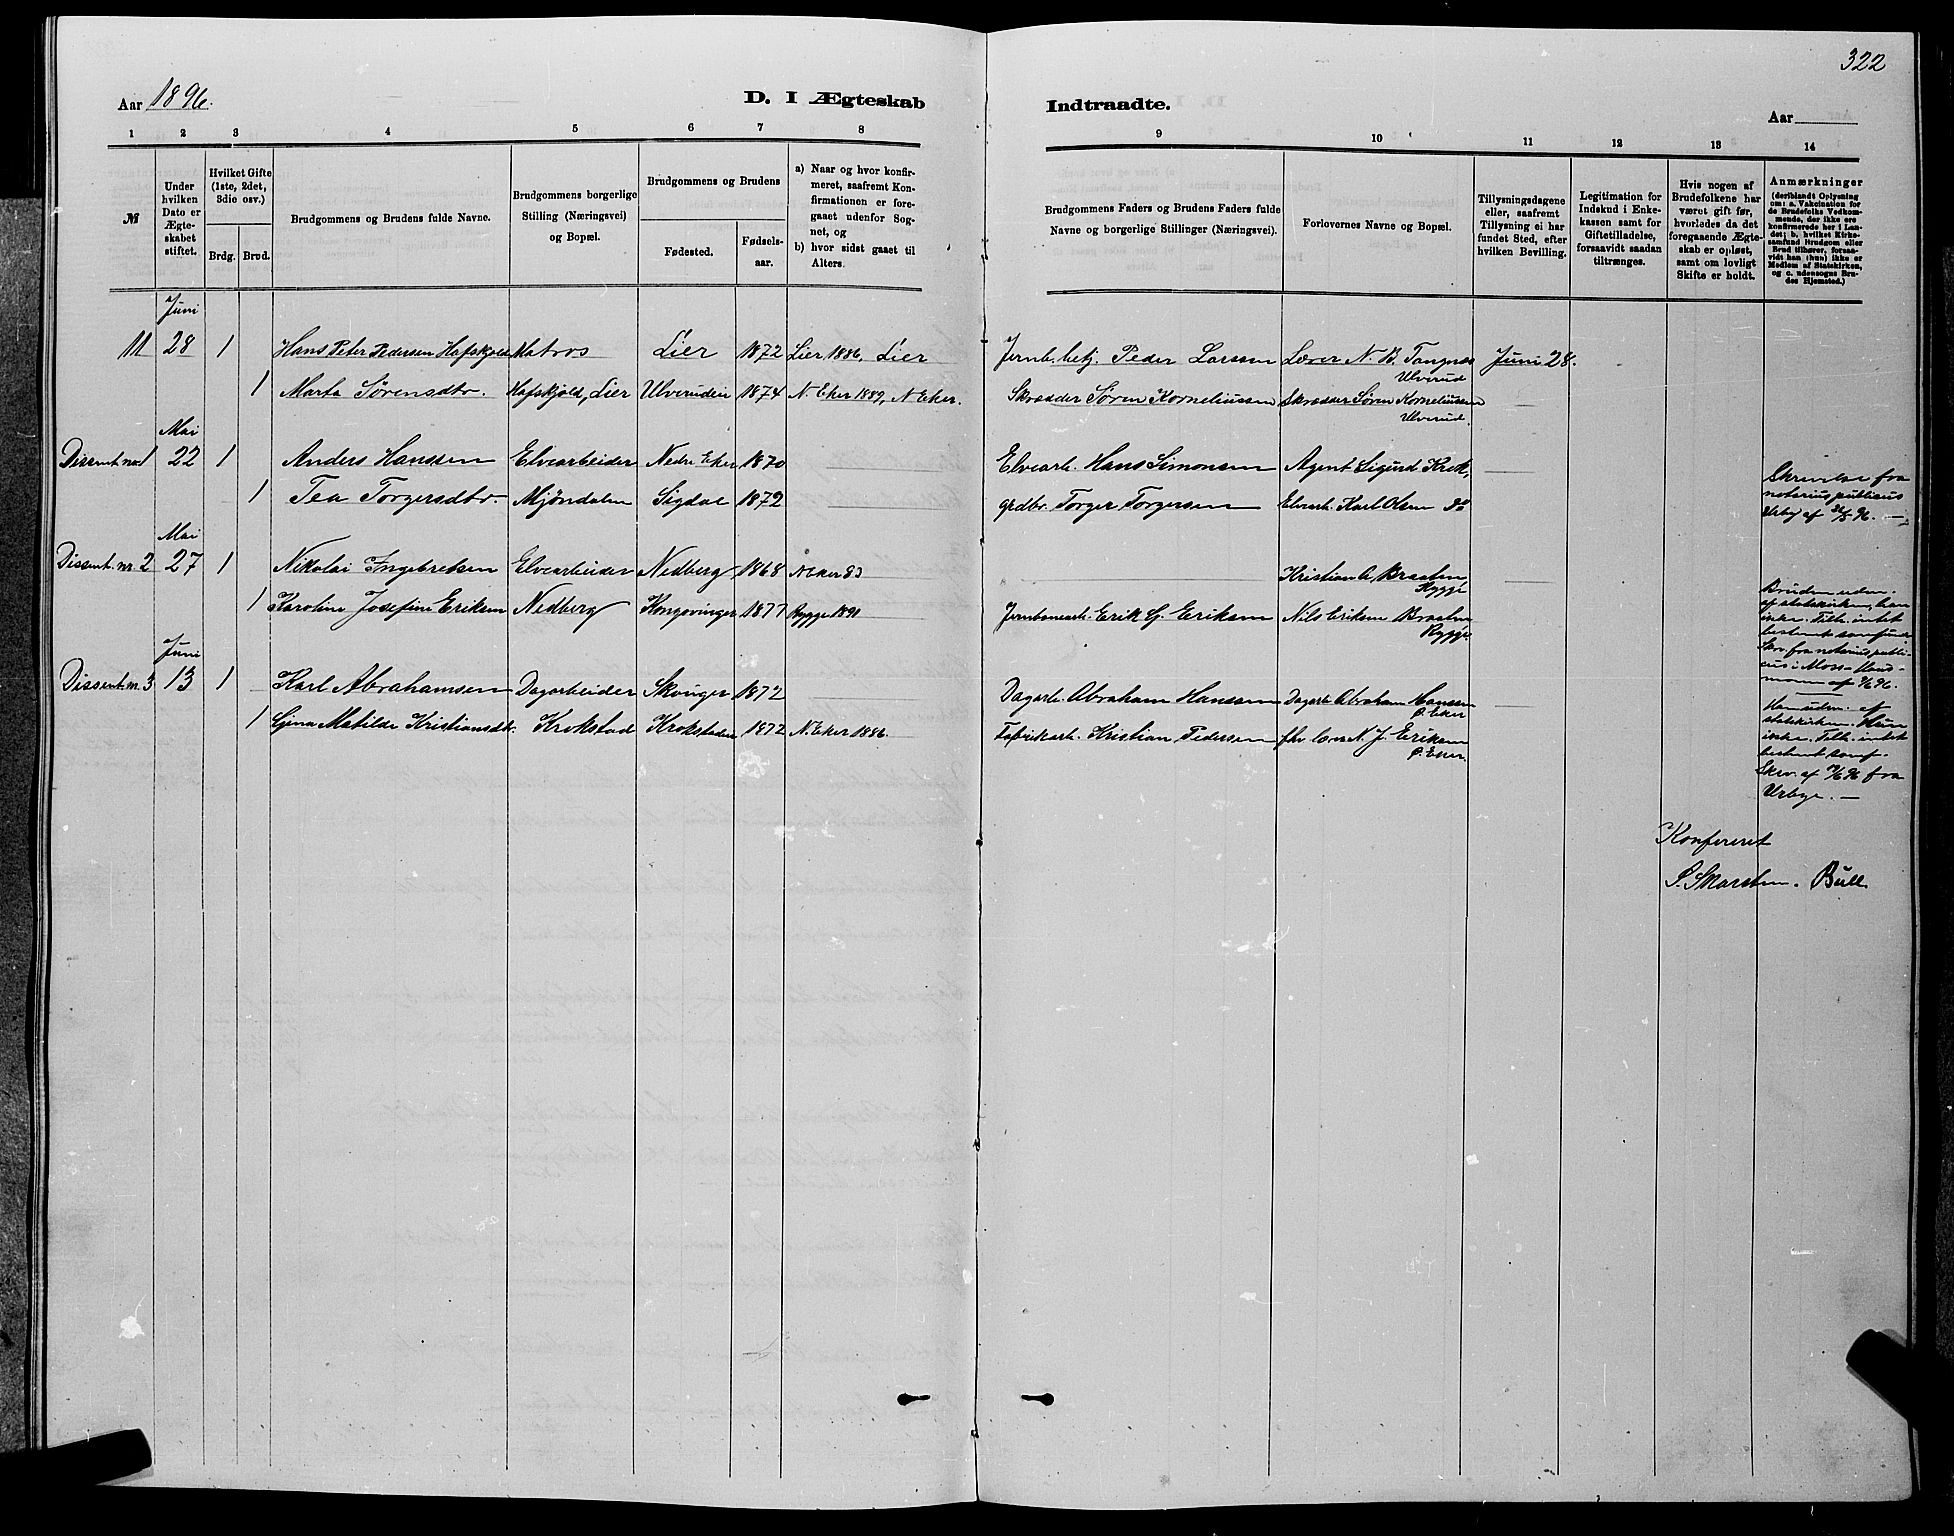 322
Aar 1896.
D. I Ægteskab Indtraadte.
Aar
1 2 3 4 5 6 7 8 9 10 11 12 13 14
№
Under hvilken Dato er Ægteskabet stiftet.
Hvilket Gifte (1ste, 2det, 3die osv.)
Brdg. Brud.
Brudgommens og Brudens fulde Navne.
Brudgommens borgerlige Stilling (Næringsvei) og Bopæl.
Brudgommens og Brudens
Fødested. Fødselsaar.
a) Naar og hvor konfirmeret, saafremt Konfirmationen er foregaaet udenfor Sognet, og
b) hvor sidst gaaet til Alters.
Brudgommens Faders og Brudens Faders fulde Navne og borgerlige Stillinger (Næringsvei).
Forlovernes Navne og Bopæl.
Tillysningsdagene eller, saafremt Tillysning ei har fundet Sted, efter hvilken Bevilling.
Legitimation for Indskud i Enkekassen samt for Giftetilladelse, forsaavidt saadan tiltrænges.
Hvis nogen af Brudefolkene har været gift før, hvorledes da det foregaaende Ægteskab er opløst, samt om lovligt Skifte er holdt.
Anmærkninger (deriblandt Oplysning om: a. Vakcination for de Brudefolks Vedkommende, der ikke ere konfirmerede her i Landet; b. hvilket Kirkesamfund Brudgom eller Brud tilhører, forsaavidt han (hun) ikke er Medlem af Statskirken, og c. udensogns Brudes Hjemsted.)
Juni
11 28 1 Hans Peter Pedersen Hafskjold Matros Lier 1872 Lier 1886, Lier Jernb. betj. Peder Larsen Lærer N. B. Tangnæs Ulverud Juni 28.
1 Marta Sørensdtr. Hafskjold, Lier Ulverudeie 1874 N. Eker 1889, N Eker. Skrædder Søren Korneliussen Skrædder Søren Korneliussen Ulverud.
Mai
Dissent. no 1 22 1 Anders Hanssen Elvearbeider Nedre Eker 1870 Elvearb. Hans Simonsen Agent Sigurd Krok, Skrivelse fra
1 Tea Torgersdtr. Mjöndalen Sigdal 1872 grdbr. Torger Torgersen Elvearb. Karl Olsen do notarius publicus
Urby af 96. —
Mai
Dissent. nr. 2 27 1 Nikolai Ingebretsen Elvearbeider Nedberg 1868 N Eker 83 Kristian A Braaten Rygge
1 Karoline Josefine Eriksen Nedberg Kongsvinger 1877 Rygge 1891 Jernbanearb. Erik G. Eriksen Nils Eriksen Braaten Rygge.
Bruden uden.
af statskirken, han
ikke. Tilh. intet
bestemt samfund
Skr. fra notarius publi-
cus i Moss
af 96.
Juni
Dissent. nr. 3 13 1 Karl Abrahamsen Dagarbeider Skvinger 1872 Dagarb. Abraham Hanssen Dagarb. Abraham Hanssen Ø. Eker
1 Gjina Matilde Kristiansdtr. Krokstad Krokstadeie 1872 N. Eker 1886. Fabrikarb. Kristian Pedersen fhv. lærer N. J. Eriksen Ø. Eker.
Han uden. af
statskirken. Hun
ikke. Tilh. intet
bestemt samf.
Skr. af 96 fra
Urbye. —
Konfereret
S. Skarsten. Bull